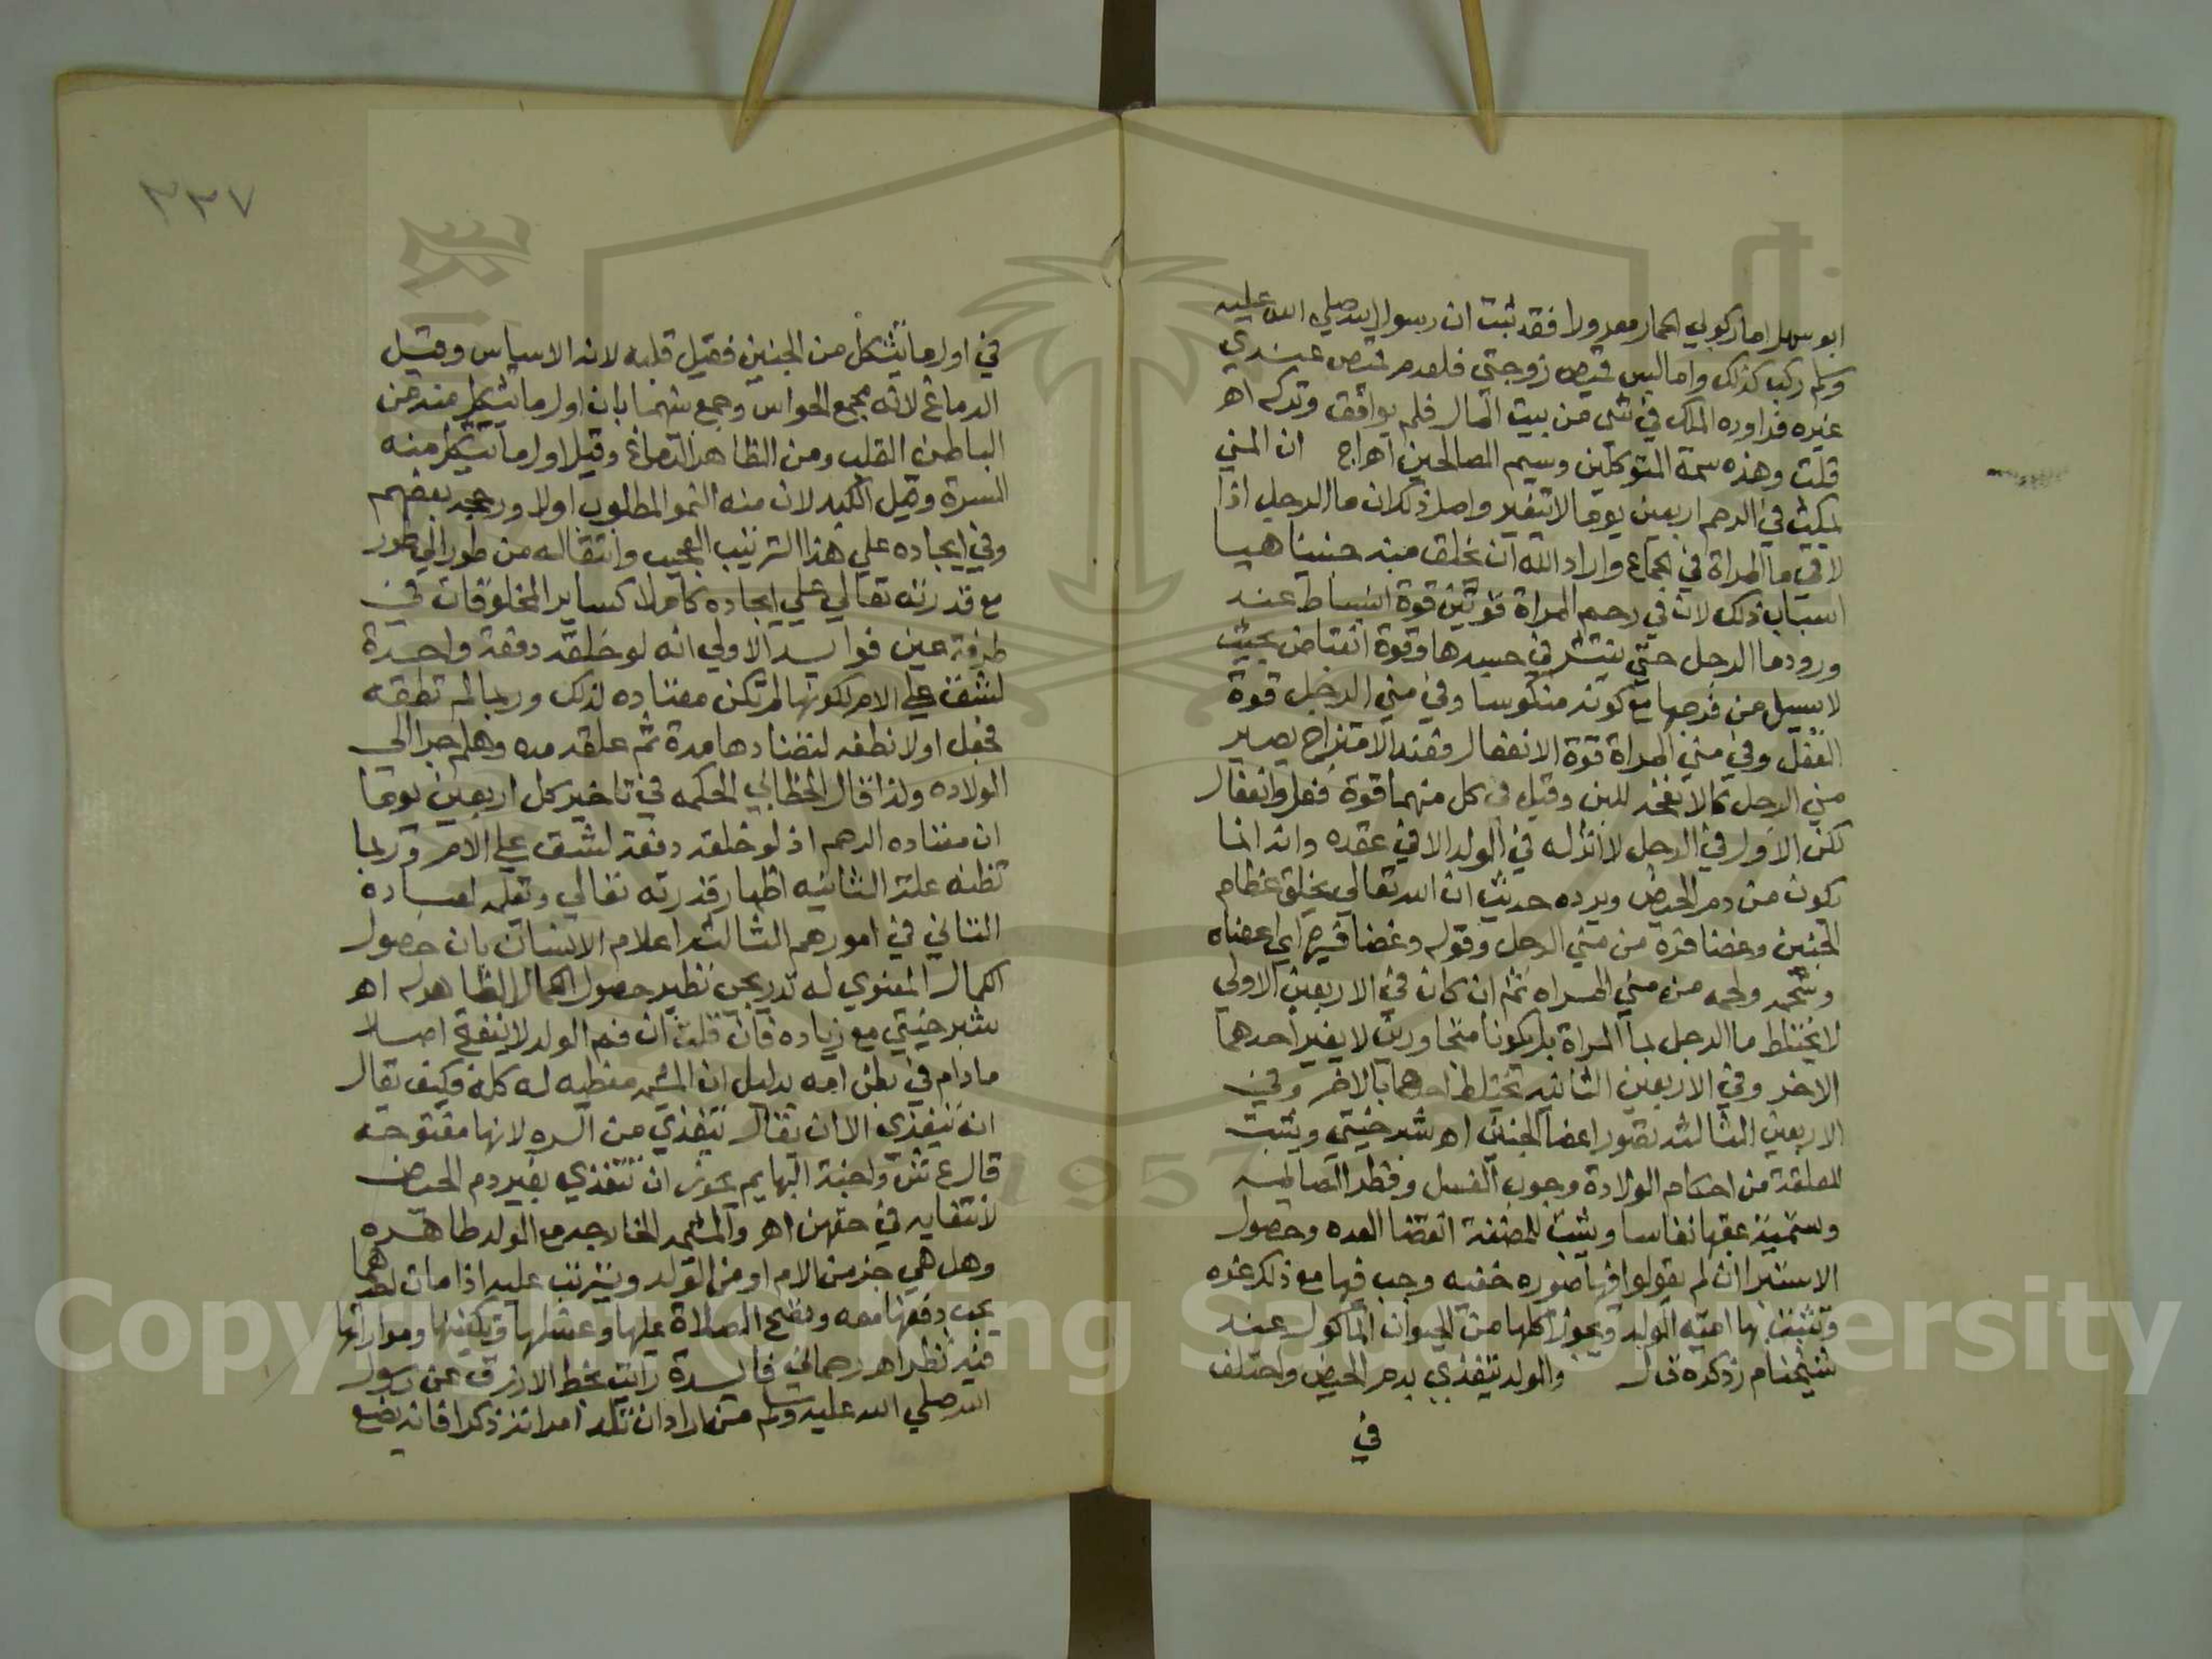 ابو سهل اما ركوبي الحمار معرورا فقد ثبت ان رسول الله صلي الله عليه
وسلم ركب كذلك واما لبس قميص زوجتي فلعدم قميص عندي
غيره فراوده الملك في شي من بيت المال فلم يوافق وتركه اهـ
قلت وهذه سمة المتوكلين وسيم الصالحين اهراج ان المني
يمكث في الرحم اربعين يوما لا يتغير واصل ذلك ان ما الرجل اذا
لاقي ما المراة في الجماع واراد الله ان يخلق منه جنينا هيا
اسباب ذلك لان في رحم المراة قوتين قوة انبساط عند
ورود ما الرجل حتي ينتشر في جسدها وقوة انقباض بحيث
لا يسيل من فرجها مع كونه منكوسا وفي مني الرجل قوة
الفعل وفي مني المراة قوة الانفعال فعند الامتزاج يصير
مني الرجل كالانفحه للبن وقيل في كل منهما قوة فعل وانفعال
لكن الاول في الرجل لا اثر له في الولد الا في عقده وانه انما
يكون من دم الحيض ويرده حديث ان الله تعالي يخلق عظام
الجنين وغضاقره من مني الرجل وقوله وغضاقره اي اعضاه
وشحمه ولحمه من مني المراه ثم ان كان في الاربعين الاولي
لا يختلط ما الرجل بما المراة بل يكونا متجاورين لا يغير احدهما
الاخر وفي الاربعين الثانيه يختلط احدهما بالاخر وفي
الاربعين الثالثه تصور اعضا الجنين اهـ شبرخيتي ويثبت
للعلقة من احكام الولادة وجوب الغسل وفطر الصايمه
وتسمية عقبها نفاسا ويثبت للمضغة انقضا العده وحصول
الاستبرا ان لم يقولوا فيها صوره خفيه وجب فيها مع ذلك غره
وتثبت بها امية الولد ويجوز اكلها من الحيوان الماكول عند
شيخنا م ر ذكره ق ل والولد يتغذي بدم الحيض واختلف
في
٣٣٧
في اول ما يتشكل من الجنين فقيل قلبه لانه الاساس وقيل
الدماغ لانه مجمع الحواس وجمع بينهما بان اول ما يتشكل منه من
الباطن القلب ومن الظاهر الدماغ وقيل اول ما يتشكل منه
السرة وقيل الكبد لان منه النمو المطلوب اولا ورجحه بعضهم
وفي ايجاده علي هذا الترتيب العجيب وانتقاله من طور الي طور
مع قدرته تعالي علي ايجاده كاملا كساير المخلوقات في
طرفة عين فوايد الاولي انه لو خلقه دفعة واحدة
لشق علي الام لكونها لم تكن معتاده لذلك وربما لم تطقه
فجعل اولا نطفه لتعتادها مدة ثم علقه مده وهلم جرا الي
الولاده ولذا قال الخطابي الحكمه في تاخير كل اربعين يوما
ان معتاده الرحم اذ لو خلقه دفعة لشق علي الام وربما
تظنه علة الثانيه اظهار قدرته تعالي وتعليمه لعباده
التاني في امورهم الثالثه اعلام الانسان بان حصول
الكمال المعنوي له تدريجي نظير حصول الكمال الظاهر له اهـ
شبرخيتي مع زياده فان قلت ان فم الولد لا ينفتح اصلا
ما دام في بطن امه بدليل ان المشيمه مغطيه له كله فكيف يقال
انه يتغذي الا ان يقال يتغذي من السره لانها مفتوحه
قال ع ش واجنة البهايم يجوز ان تتغذي بغير دم الحيض
لانتفايه في حقهن اهـ والمشيمه الخارجه مع الولد طاهره
وهل هي جز من الام او من الولد ويترتب عليه اذا مات احدهما
يجب دفنها معه وتصح الصلاة عليها وغسلها وتكفينها ومواراتها
فيه نظر اهـ رحماني فايدة رايت بخط الازرق عن رسول
الله صلي الله عليه وسلم من اراد ان تلد امراته ذكرا فانه يضع
Copyright © King Saud University
1957